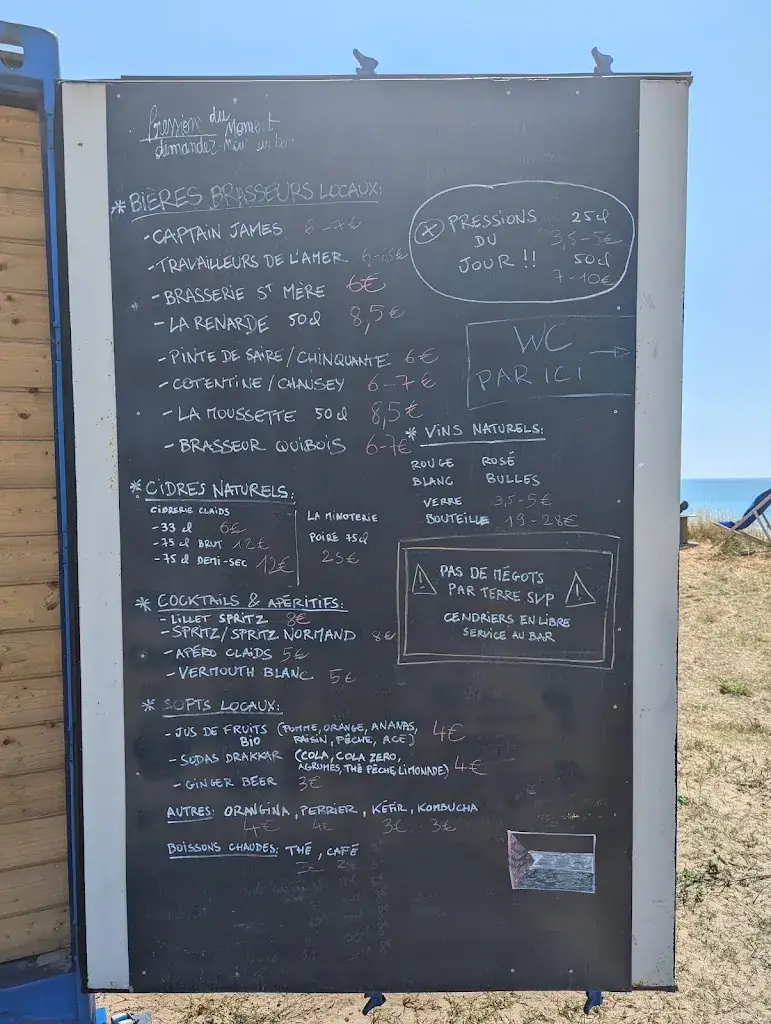 Pression du
Moment
demandez-nous au bar
* BIÈRES BRASSEURS LOCAUX:
- CAPTAIN JAMES 6-7€
- TRAVAILLEURS DE L'AMER
- BRASSERIE St MÈRE 6€
- LA RENARDE 50cl 8,5€
- PINTE DE SAIRE/CHINQUANTE 6€
- COTENTINE/CHAUSEY 6-7€
- LA MOUSSETTE 50cl 8,5€
- BRASSEUR QUIBOIS 6-7€
PRESSIONS 25cl
DU 3,5-5€
JOUR!! 50cl
7-10€
WC
PAR ICI →
* VINS NATURELS:
ROUGE ROSÉ
BLANC BULLES
VERRE 3,5-5€
BOUTEILLE 19-28€
* CIDRES NATURELS:
CIDRERIE CLAIDS
- 33 cl 6€
- 75 cl BRUT 12€
- 75 cl DEMI-SEC 12€
LA MINOTERIE
POIRÉ 75cl
25€
PAS DE MÉGOTS
PAR TERRE SVP
CENDRIERS EN LIBRE
SERVICE AU BAR
* COCKTAILS & APÉRITIFS:
- LILLET SPRITZ 8€
- SPRITZ/SPRITZ NORMAND 8€
- APÉRO CLAIDS 5€
- VERMOUTH BLANC 5€
* SOFTS LOCAUX:
- JUS DE FRUITS (POMME, ORANGE, ANANAS, 4€
BIO RAISIN, PÊCHE, ACE)
- SODAS DRAKKAR (COLA, COLA ZERO, 4€
AGRUMES, THÉ PÊCHE, LIMONADE)
- GINGER BEER 3€
AUTRES: ORANGINA, PERRIER, KÉFIR, KOMBUCHA
4€ 4€ 3€ 3€
BOISSONS CHAUDES: THÉ, CAFÉ